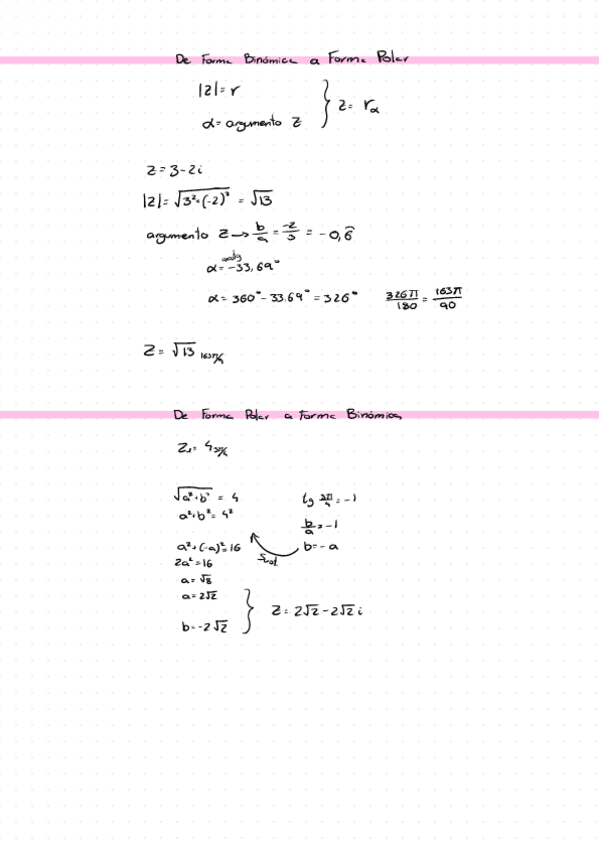 De Forma Binómica a Forma Polar
|z| = r
α = argumento z } z = rα
z = 3 - 2i
|z| = √3² + (-2)² = √13
argumento z → b/a = -2/3 = -0,6̂
α = -33,69°
α = 360° - 33,69° = 326° 326π/180 = 163π/90
z = √13
De Forma Polar a Forma Binómica
√a² + b² = 4 tg 3π/4 = -1
a² + b² = 4²
b/a = -1
a² + (-a)² = 16 b = -a
2a² = 16
a = √8
a = 2√2
} z = 2√2 - 2√2 i
b = -2√2